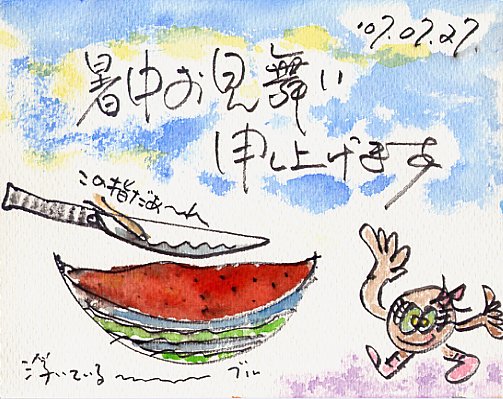 '07.07.27.
暑中お見舞い
申し上げます
この指だぁ〜れ
浮いている〜〜〜